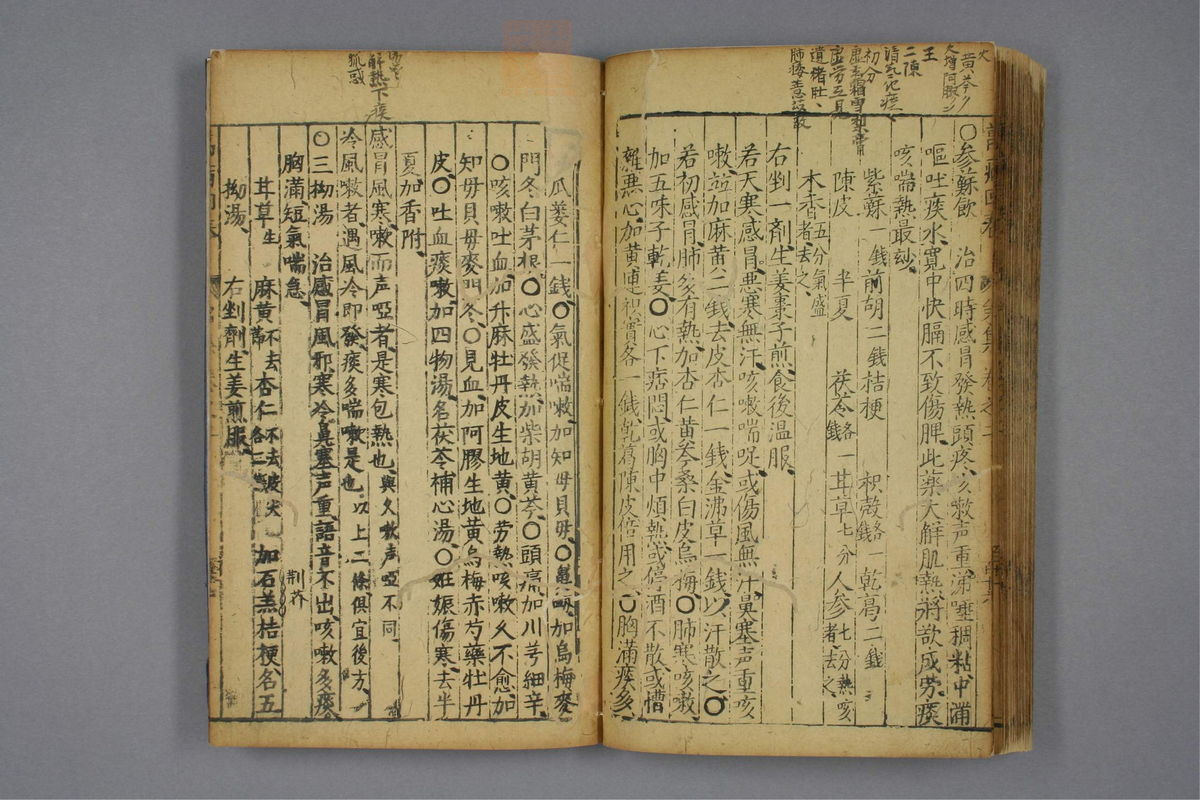 ○参蘇飲　治四時感冒發熱頭疼咳嗽声重涕唾稠粘中滿
嘔吐痰水寬中快膈不致傷脾此藥大解肌熱將欲成劳痰
咳喘熱最妙
紫蘇　一錢前胡二錢桔梗　枳殼各一錢乾葛二錢
陳皮　半夏　茯苓各一錢　甘草七分人参七分熱咳者去之
木香五分氣盛者去之
右剉一剤生姜棗子煎食後温服
若天寒感冒悪寒無汗咳嗽喘促或傷風無汗鼻塞声重咳
嗽並加麻黄二錢去皮杏仁一錢金沸草一錢以汗散之○
若初感冒肺多有熱加杏仁黄芩桑白皮烏梅○肺寒咳嗽
加五味子乾姜○心下痞悶或胸中煩熱或停酒不散或槽
雜悪心加黄連枳實各一錢乾葛陳皮倍用之○胸滿痰多
加瓜蔞仁一錢○氣促喘嗽加知母貝母○鼻衂加烏梅麥
門冬白茅根○心盛發熱加柴胡黄芩○頭疼加川芎細辛
○咳嗽吐血加升麻牡丹皮生地黄○劳熱咳嗽久不愈加
知母貝母麥門冬○見血加阿膠生地黄烏梅赤芍藥牡丹
皮○吐血痰嗽加四物湯名茯苓補心湯○姙娠傷寒去半
夏加香附
感冒風寒嗽而声啞者是寒包熱也與久嗽声啞不同
冷風嗽者遇風冷即發痰多喘嗽是也以上二條俱宜後方
○三拗湯　治感冒風邪寒冷鼻塞声重語音不出咳嗽多痰
胸滿短氣喘急
甘草生　麻黄不去節　杏仁不去皮尖各二錢　加石羔桔梗名五
荆芥
拗湯　右剉劑生姜煎服
黄芩
王
二陳
清氣化痰
初分
遺猪肚
解熱下痰